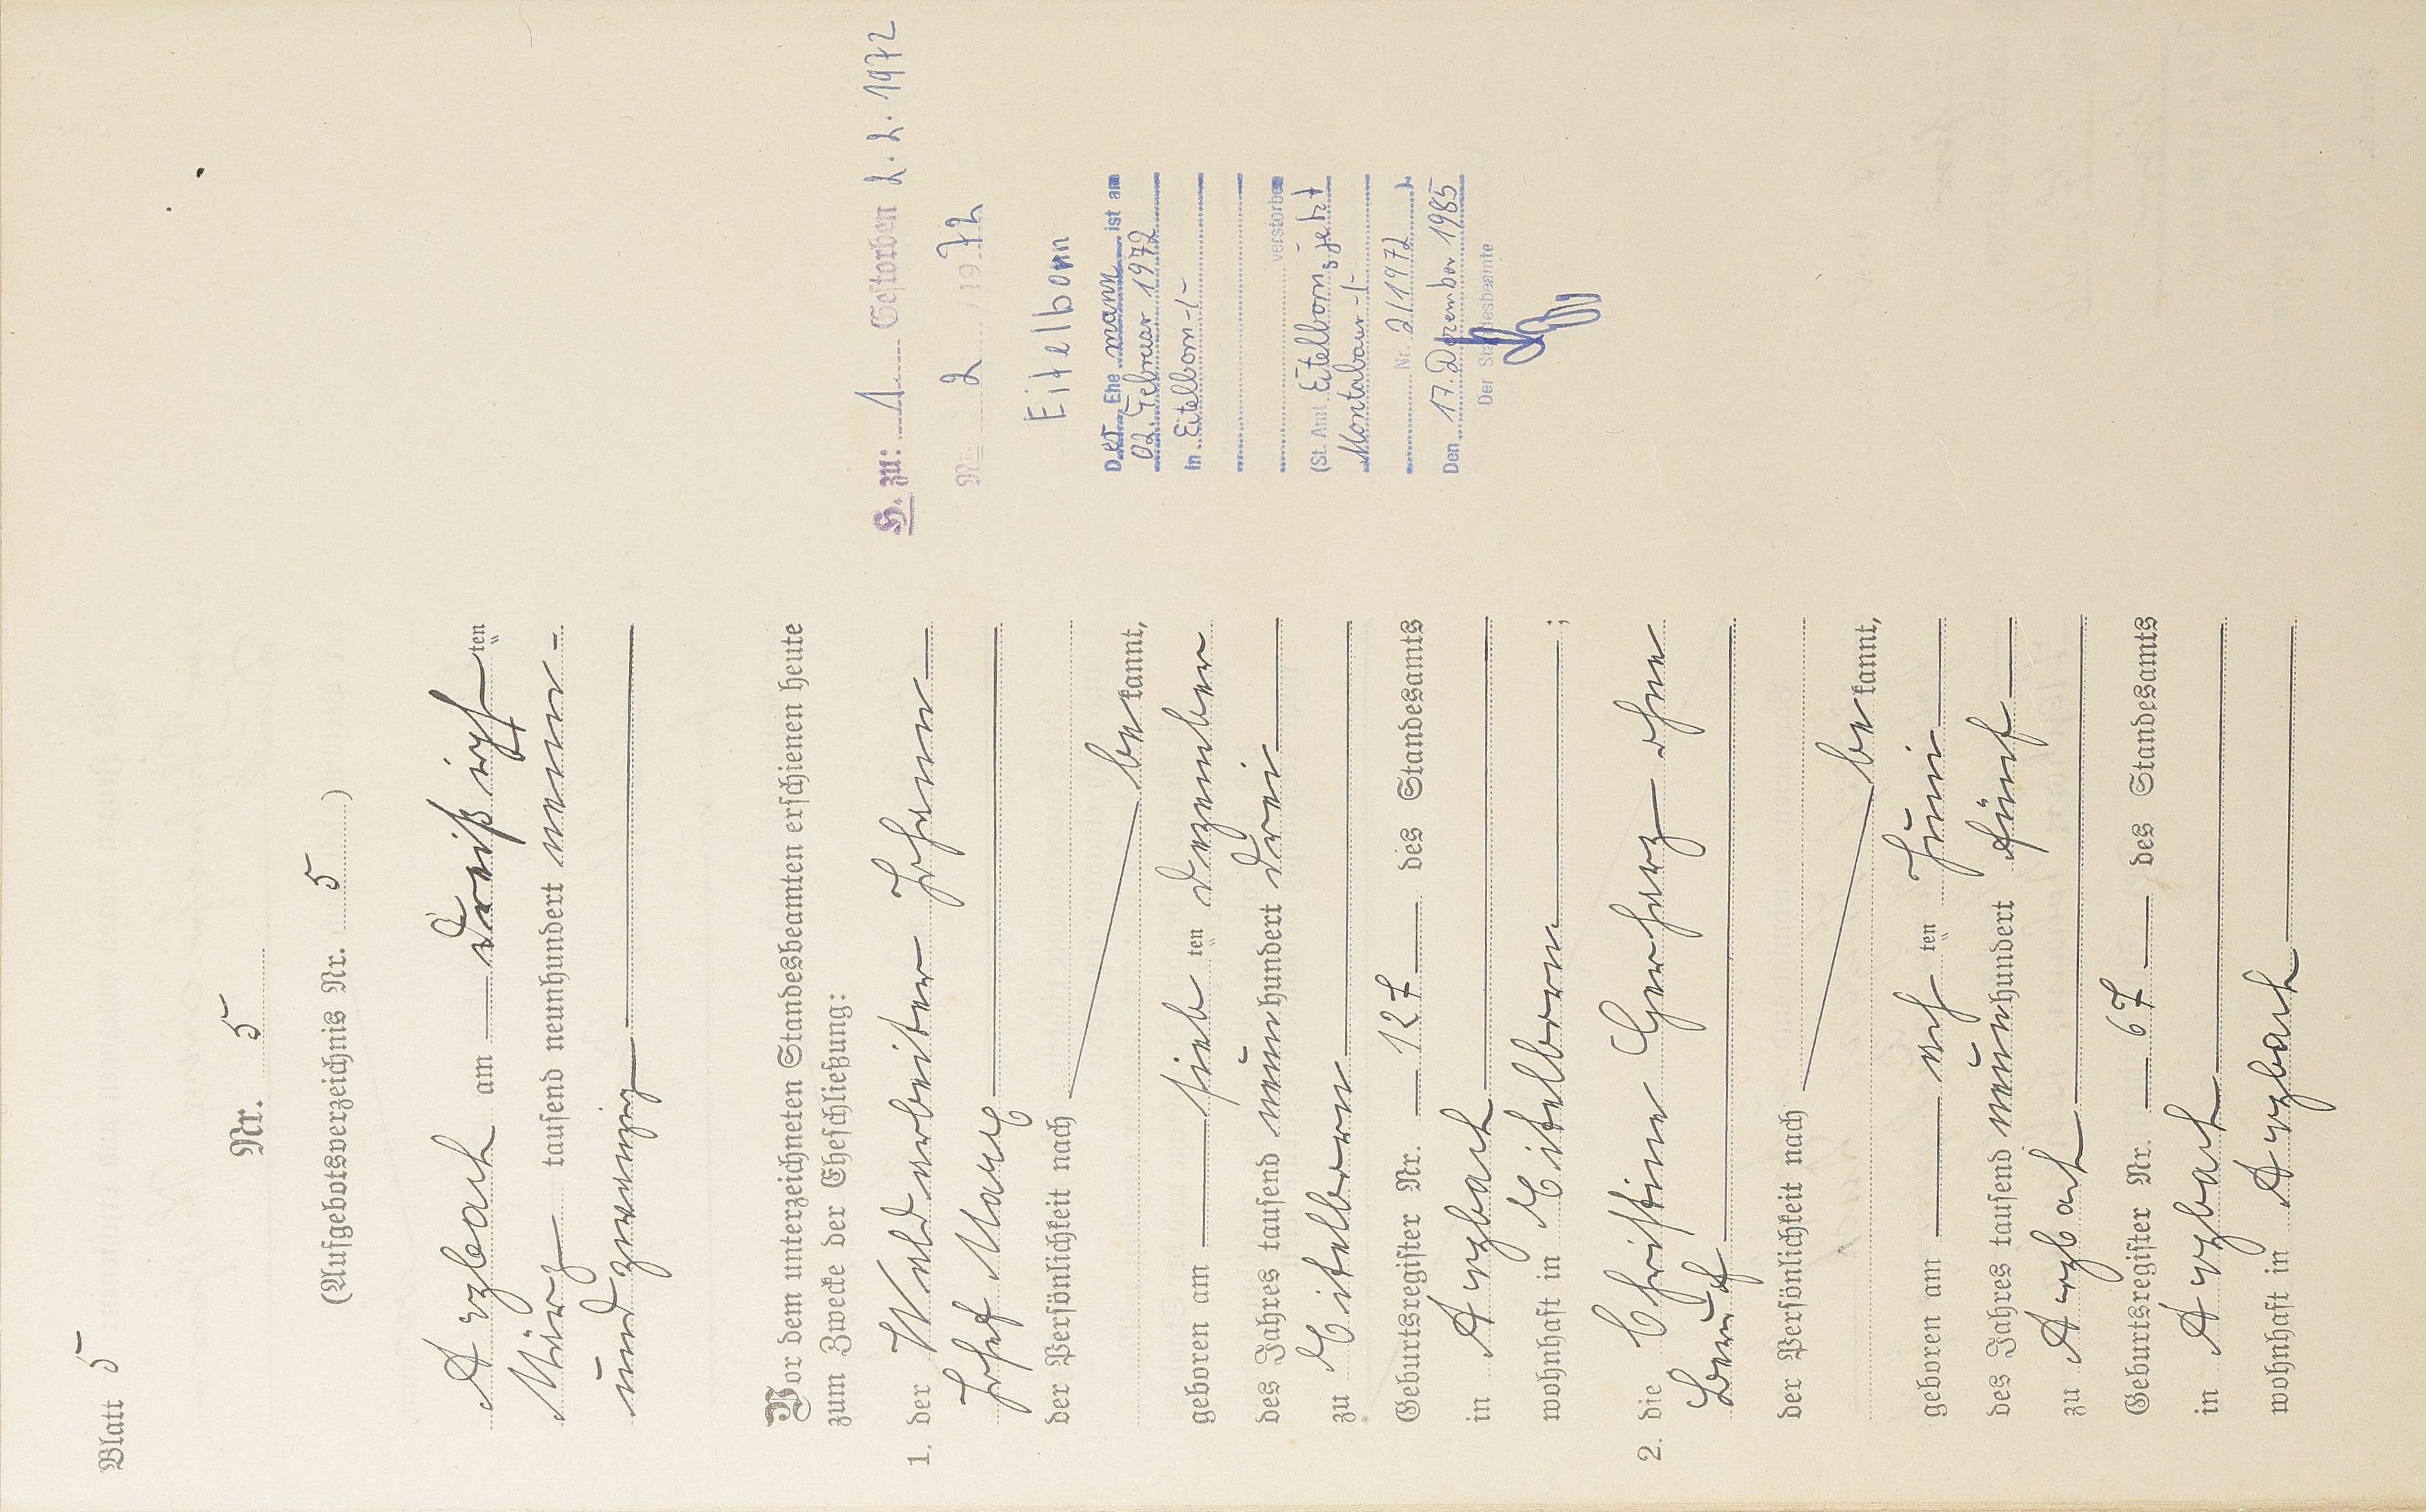 Blatt 5
Nr. 5
(Aufgebotsverzeichnis Nr. 5)
Arzbach am dreißigsten
März tausend neunhundert neun-
und zwanzig
Vor dem unterzeichneten Standesbeamten erschienen heute
zum Zwecke der Eheschließung:
1. der Waldarbeiter Johann
Josef Marx
der Persönlichkeit nach
bekannt,
geboren am siebten Dezember
des Jahres tausend neunhundert drei
zu Eitelborn
Geburtsregister Nr. 127 des Standesamts
in Arzbach
wohnhaft in Eitelborn;
2. die Christine Gerharz ohne
Beruf
der Persönlichkeit nach
bekannt,
geboren am achten Juni
des Jahres tausend neunhundert fünf
zu Arzbach
Geburtsregister Nr. 67 des Standesamts
in Arzbach
wohnhaft in Arzbach
H. zu: 1 Gestorben 2.2.1972
Nr. 2 /1972
Eitelborn
Der Ehemann ist am
02. Februar 1972
in Eitelborn -/-
verstorben
(St. Amt Eitelborn, jetzt
Montabaur -/-
Nr. 2/1972)
Den 17. Dezember 1985
Der Standesbeamte